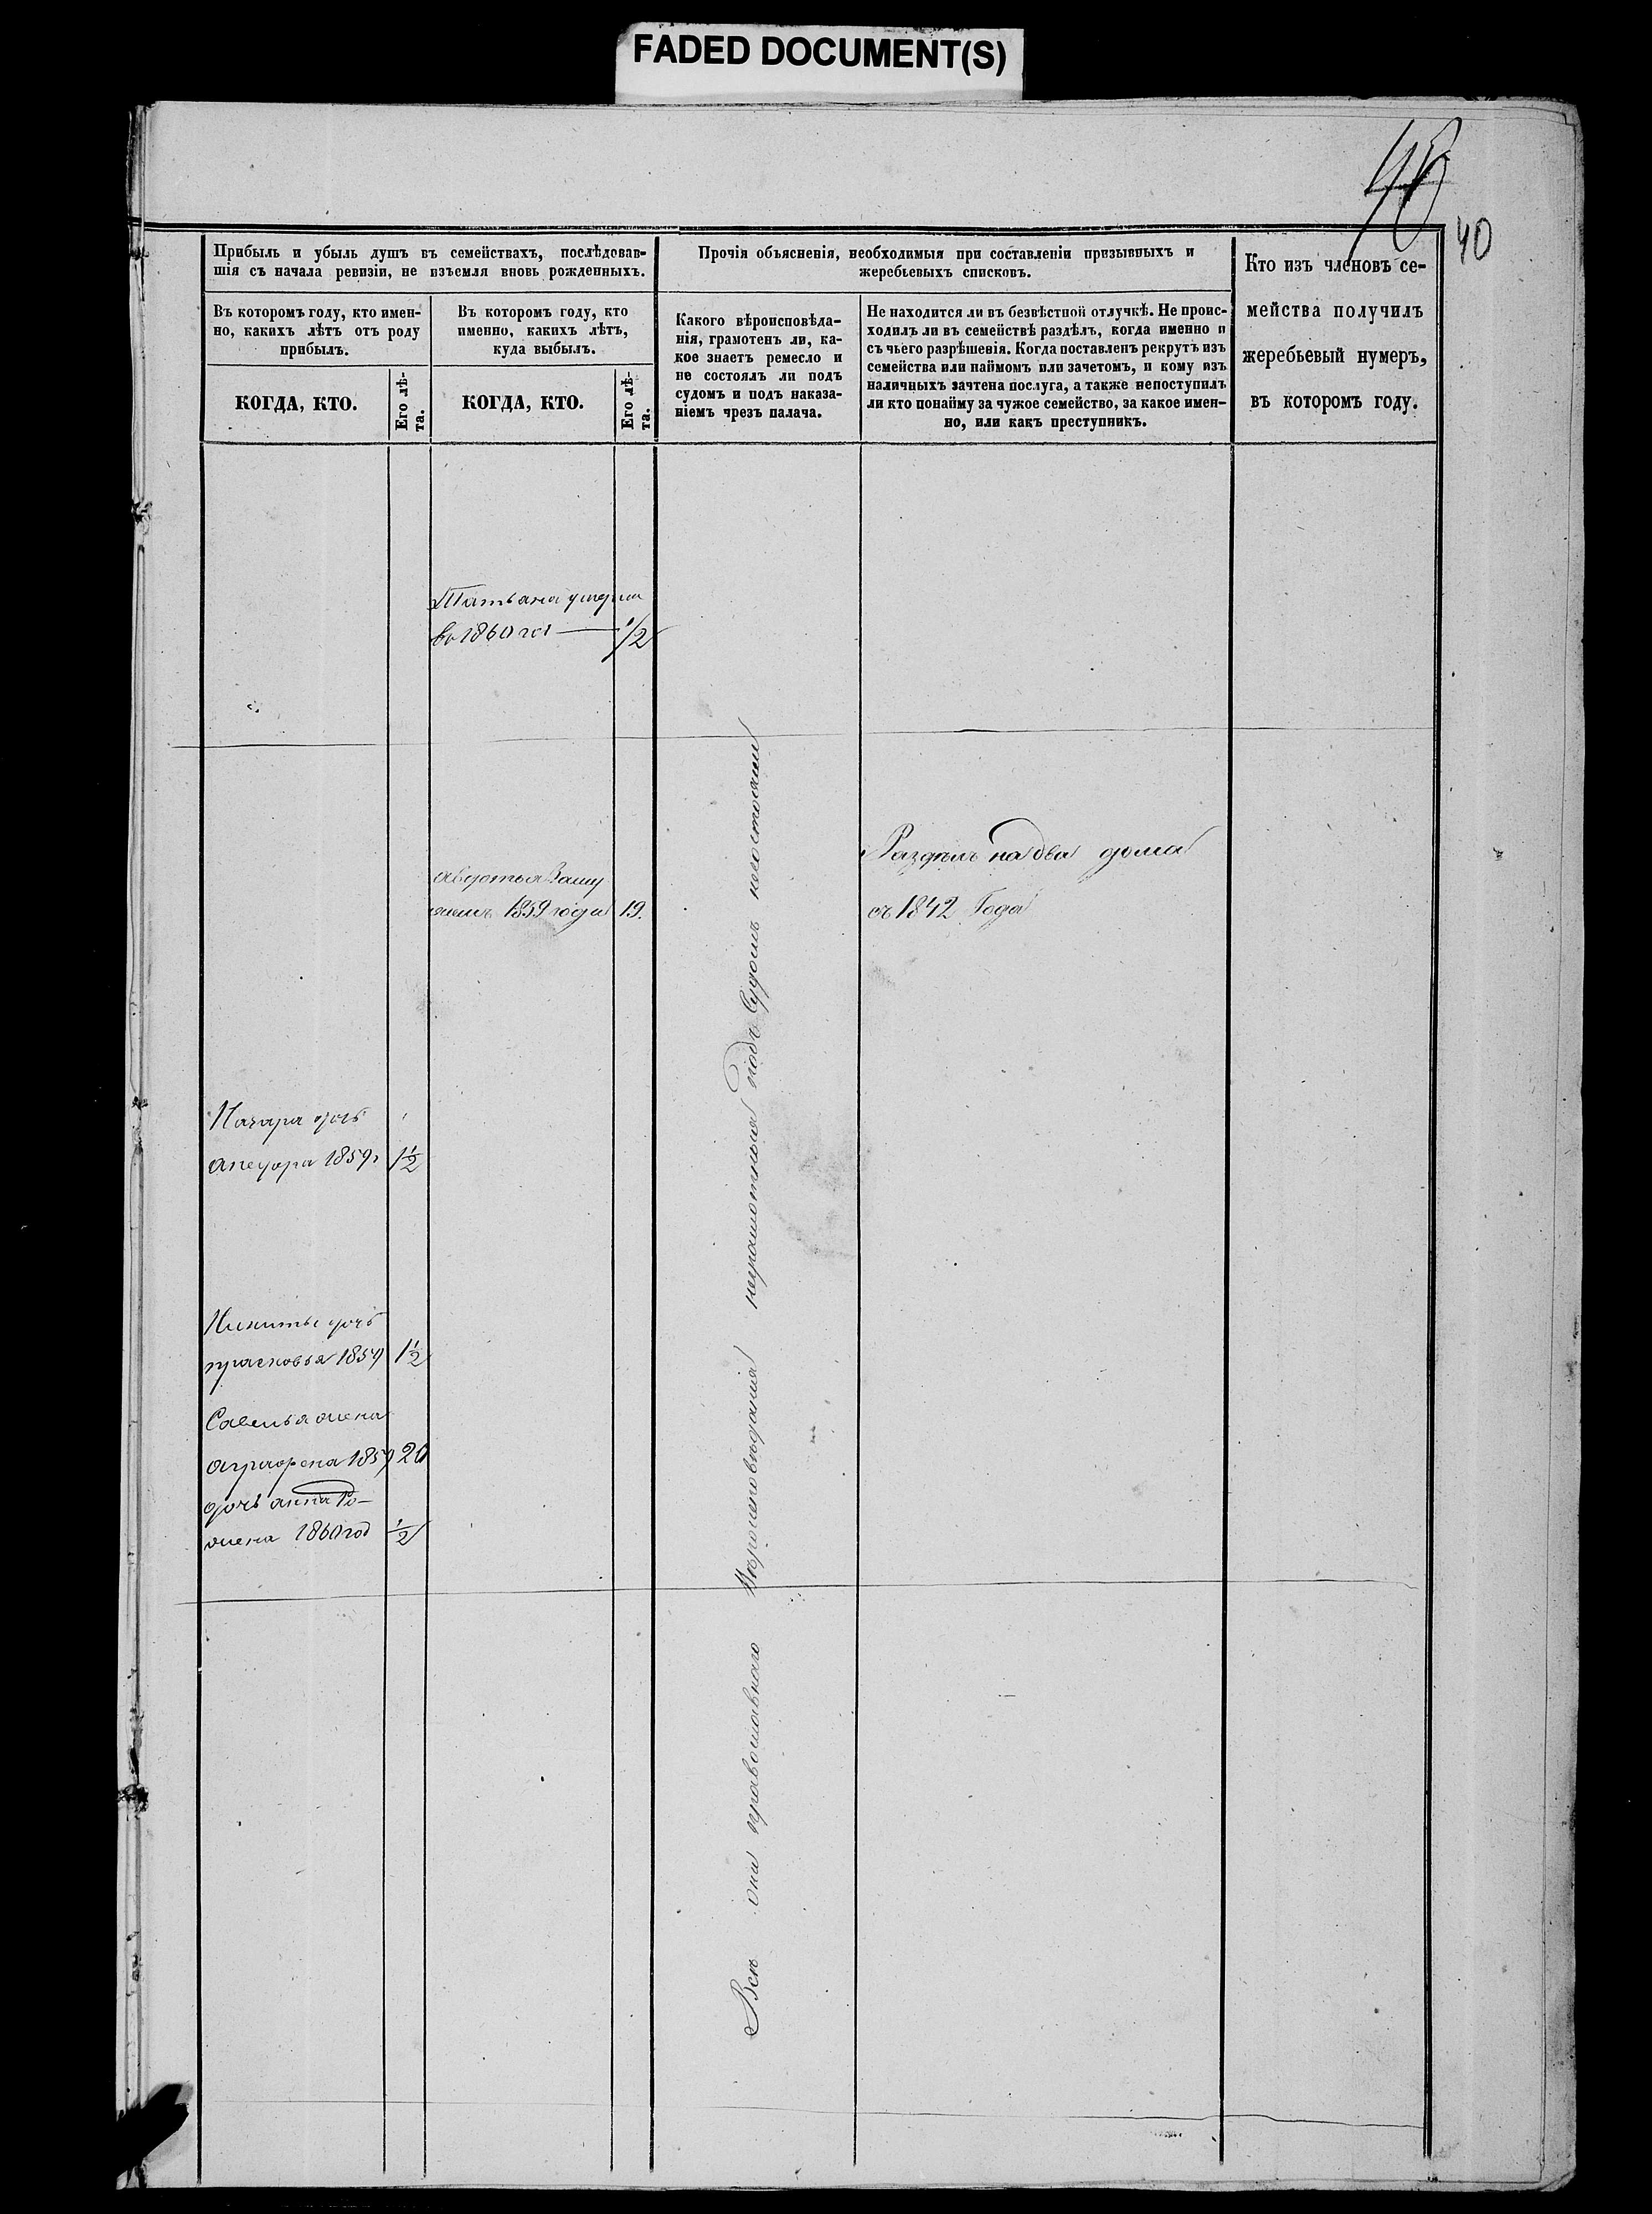 FADED DOCUMENT(S)
40
Прибыль и убыль душъ въ семействахъ, послѣдовав-
шія съ начала ревизіи, не изъемля вновь рожденныхъ.
Въ которомъ году, кто имен-
но, какихъ лѣтъ отъ роду
прибылъ.
КОГДА, КТО.
Его лѣ-
та.
Въ которомъ году, кто
именно, какихъ лѣтъ,
куда выбылъ.
КОГДА, КТО.
Его лѣ-
та.
Прочія объясненія, необходимыя при составленіи призывныхъ и
жеребьевыхъ списковъ.
Какого вѣроисповѣда-
нія, грамотенъ ли, ка-
кое знаетъ ремесло и
не состоялъ ли подъ
судомъ и подъ наказа-
ніемъ чрезъ палача.
Не находится ли въ безвѣстной отлучкѣ. Не проис-
ходилъ ли въ семействѣ раздѣлъ, когда именно и
съ чьего разрѣшенія. Когда поставленъ рекрутъ изъ
семейства или наймомъ или зачетомъ, и кому изъ
наличныхъ зачтена послуга, а также непоступилъ
ли кто понайму за чужое семейство, за какое имен-
но, или какъ преступникъ.
Кто изъ членовъ се-
мейства получилъ
жеребьевый нумеръ,
въ которомъ году.
Татьяна умерла
во 1860 год 1/2
авдотья Заму
жемъ 1859 года 19.
Раздѣлъ на два дома
съ 1842 Года
Назара дочь
1859г 1 1/2
Никиты дочь
прасковья 1859 1 1/2
Савелья жена
аграфена 1859 20
дочь анна Ро-
жена 1860 год 1/2
Всѣ они православнаго Вѣроисповѣданія неграмотныя подъ Судомъ несостояли